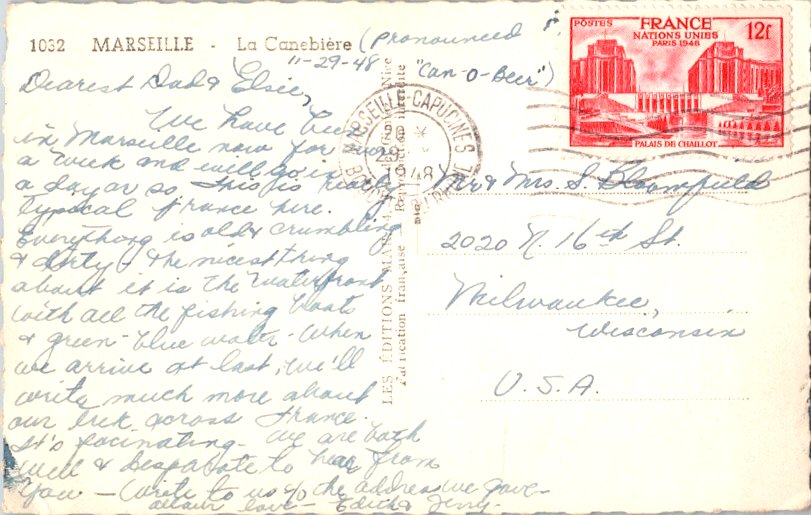 1032 MARSEILLE - La Canebière (pronounced
"Can-O-Beer")
11-29-48
POSTES FRANCE 12f
NATIONS UNIES
PARIS 1948
PALAIS DE CHAILLOT
MARSEILLE-CAPUCINES
1948
Dearest Dad & Elsie,
We have been
in Marseille now for over
a week and will go in
a day or so. This is really
typical France here.
Everything is old & crumbling
& dirty & the nicest thing
about it is the waterfront
with all the fishing boats
& green-blue water. When
we arrive at last, we'll
write much more about
our trek across France.
It's facinating. We are both
well & desparate to hear from
you - Write to us c/o the address we gave.
all our love - Edith & Jerry.
LES ÉDITIONS MAR
Nice
Fabrication française
interdite
Mr & Mrs. S. Bloomfield
2020 N. 16th St.
Milwaukee,
Wisconsin
U.S.A.